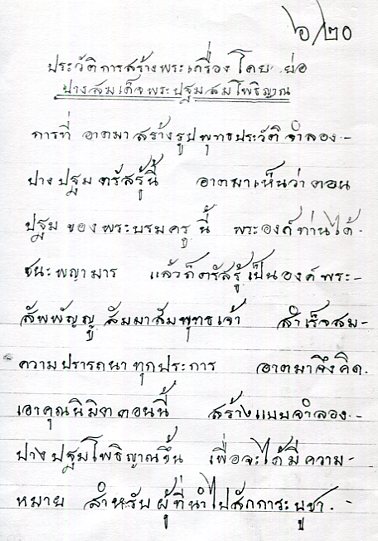 ๖/๒๐
ประวัติการสร้างพระเครื่องโดยย่อ
ปางสมเด็จพระปฐมสมโพธิญาณ
การที่ อาตมาสร้างรูปพุทธประวัติจำลอง-
ปางปฐมตรัสรู้นี้ อาตมาเห็นว่าตอน
ปฐมของพระบรมครูนี้ พระองค์ท่านได้-
ชนะพญามาร แล้วก็ตรัสรู้เป็นองค์พระ-
สัพพัญญูสัมมาสัมพุทธเจ้า สำเร็จสม-
ความปรารถนาทุกประการ อาตมาจึงคิด-
เอาคุณนิมิตตอนนี้ สร้างแบบจำลอง-
ปางปฐมโพธิญาณขึ้น เพื่อจะได้มีความ-
หมาย สำหรับผู้ที่นำไปสักการะบูชา.-